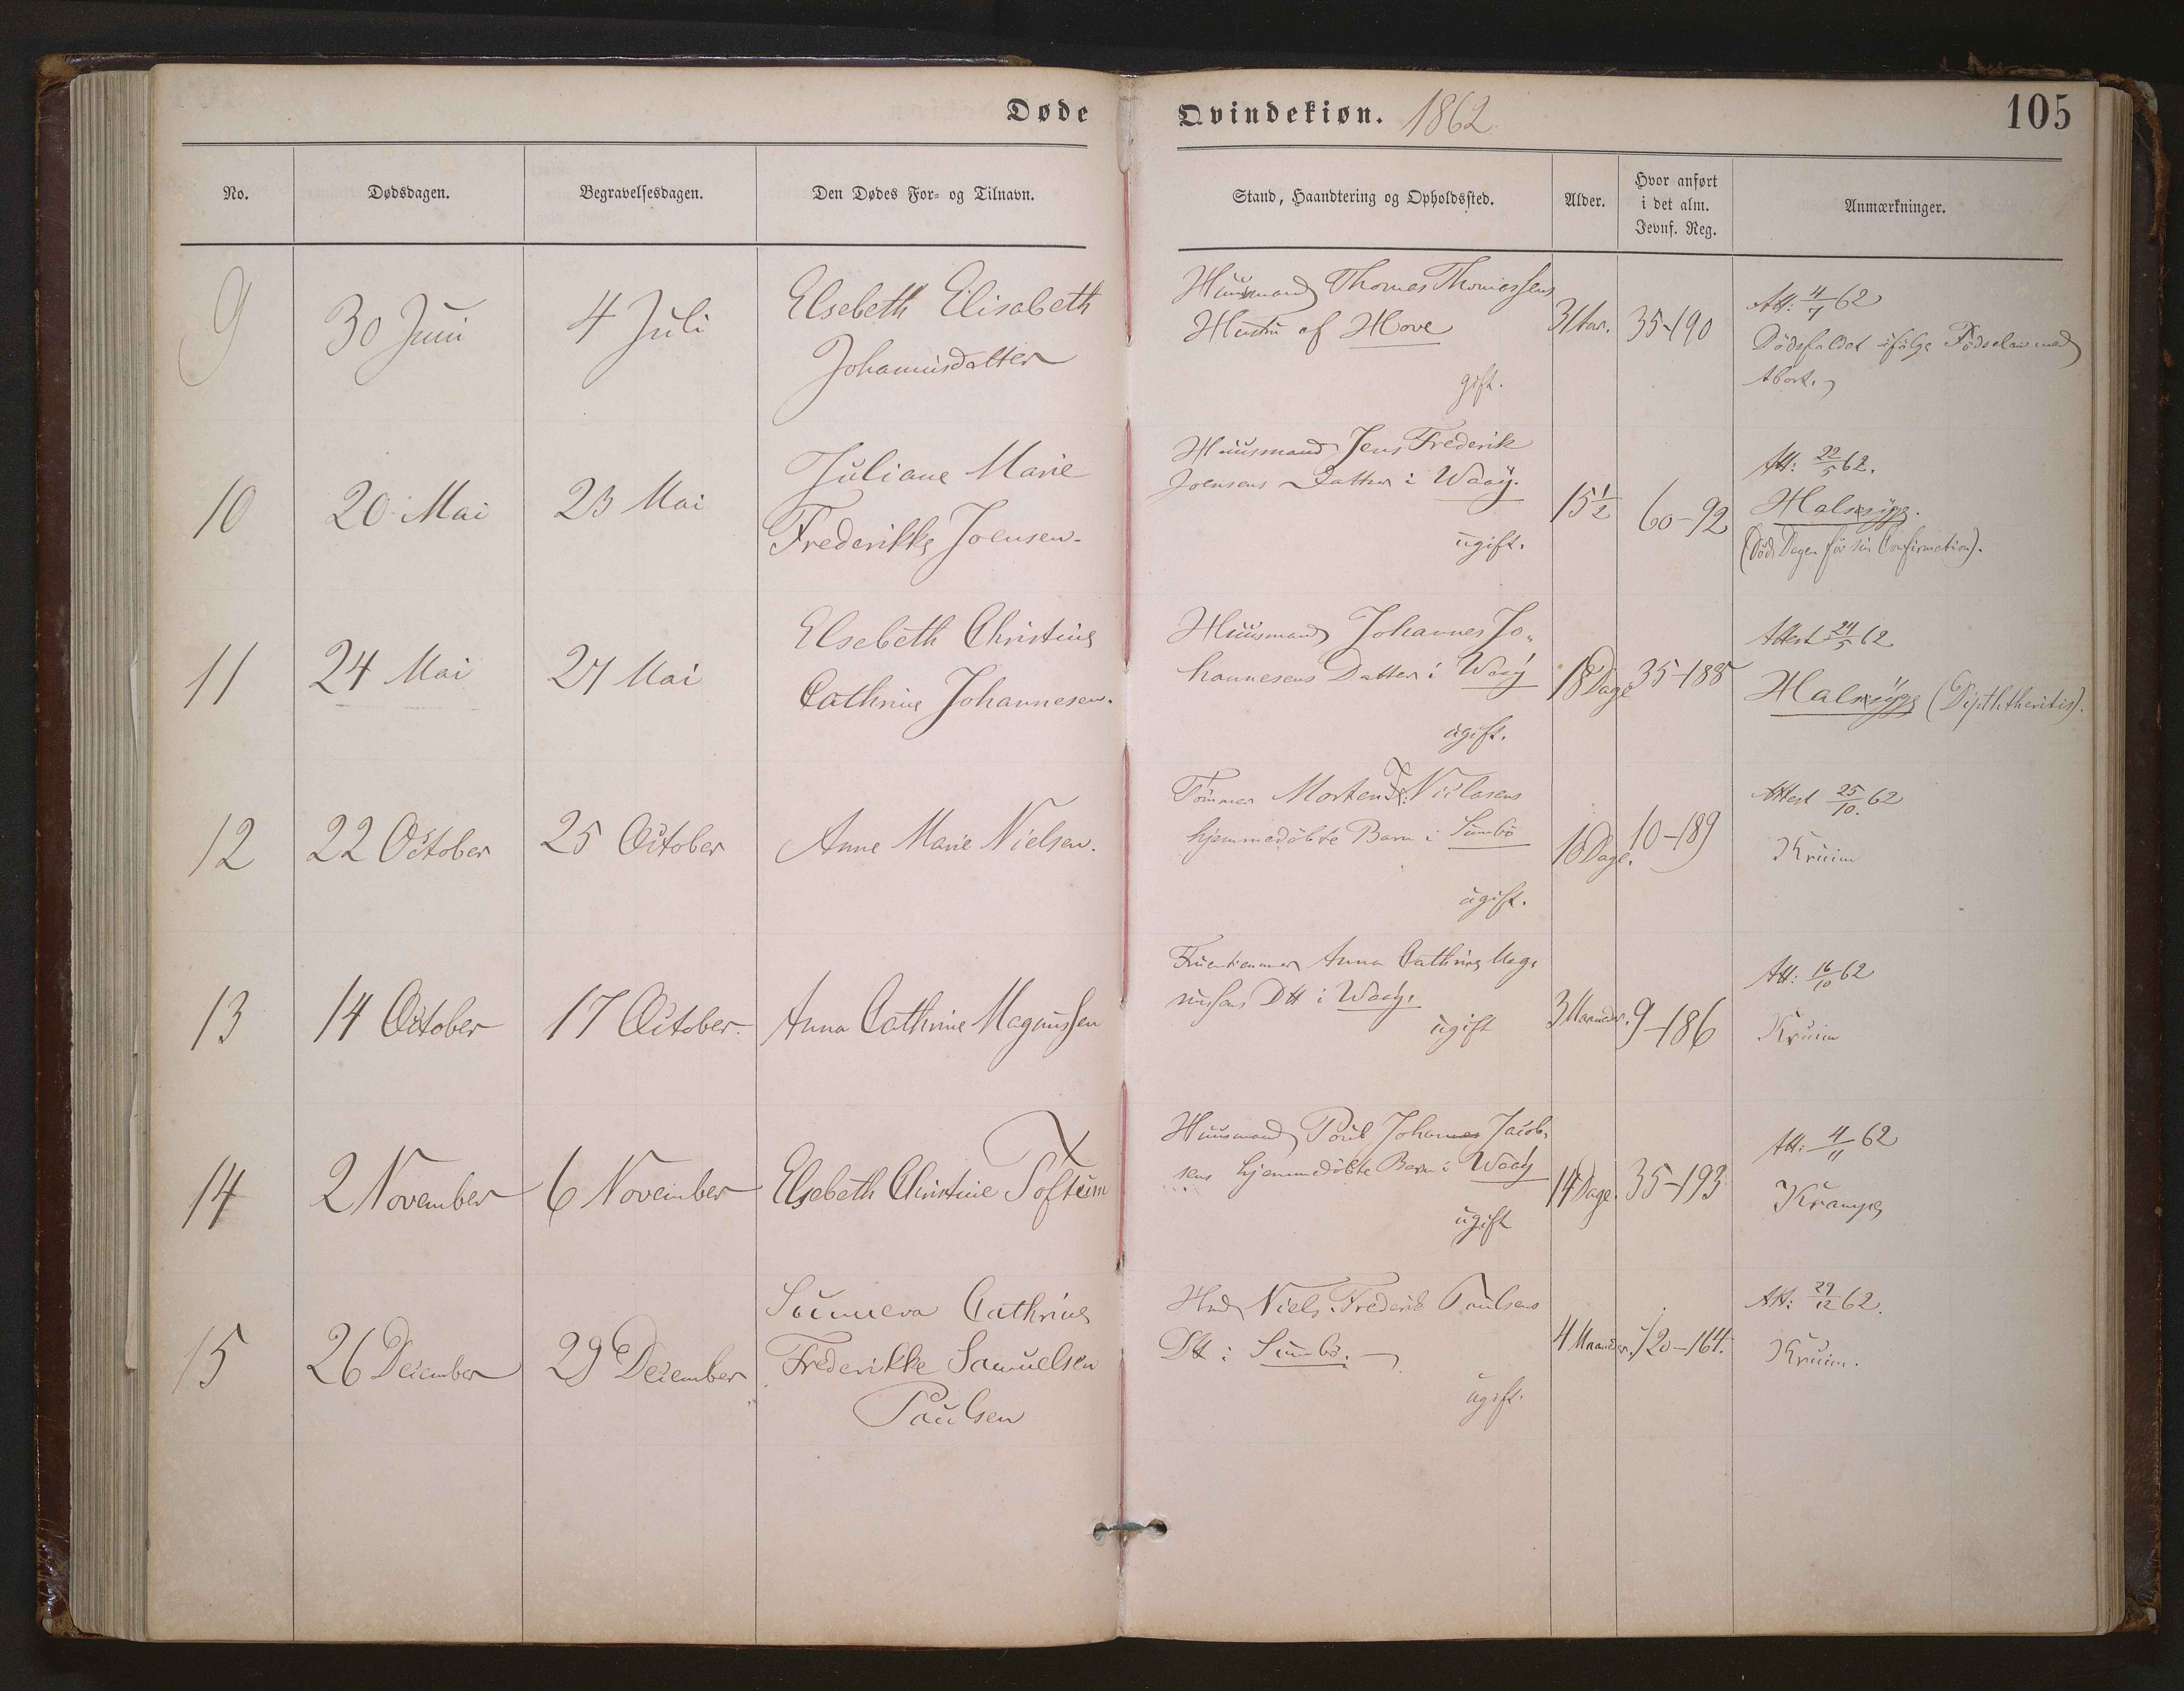 Døde Qvindekiøn. 1862 105
No. Dødsdagen. Begravelsesdagen. Den Dødes For- og Tilnavn. Stand, Haandtering og Opholdssted. Alder. Hvor anført i det alm. Jevnf. Reg. Anmærkninger.
9 30 Juni 4 Juli Elsebeth Elisabeth
Johannisdatter
Huusmand Thomas Thomassens
Hustru af Hove
gift.
31 Aar. 35-190
Att: 4/7 62
Dödsfaldet ifölge Födselen med
Abort.
10 20 Mai 23 Mai Juliane Marie
Frederikke Joensen.
Huusmand Jens Frederik
Joensens Datter i Waaÿ.
ugift.
15½ 60-92
Att: 22/5 62.
Halssyge.
(Död Dagen för sin Confirmation).
11 24 Mai 27 Mai Elsebeth Christine
Cathrine Johannesen.
Huusmand Johannes Jo-
hannesens Datter i Waaÿ
ugift.
18 Dage 35-188
Attest 24/5 62
Halssyge (Dipththeritis).
12 22 October 25 October Anne Marie Nielsen.
Morten Niclasens
hjemmedöbte Barn i Sumbö
ugift.
16 Dage. 10-189
Attest 25/10. 62
Kruim
13 14 October 17 October. Anna Cathrine Magnussen
Fruentimmer Anna Cathrine Mag-
nussens Dtt i Waaÿ.
ugift
3 Maaneder. 9-186
Att: 16/10 62
Kruim
14 2 November 6 November Elsebeth Christine Joftum
Huusmand Poul Johannes Jacob-
sens hjemmedöbte Barn i Waaÿ
ugift
14 Dage. 35-193
Att: 4/11 62
Krampe
15 26 December 29 December Sunneva Cathrine
Frederikke Samuelsen
Paulsen
Hmd Niels Frederik Paulsens
Dtt i Sumbö.
ugift.
4 Maaneder. 120-164.
Att: 29/12 62.
Kruim.